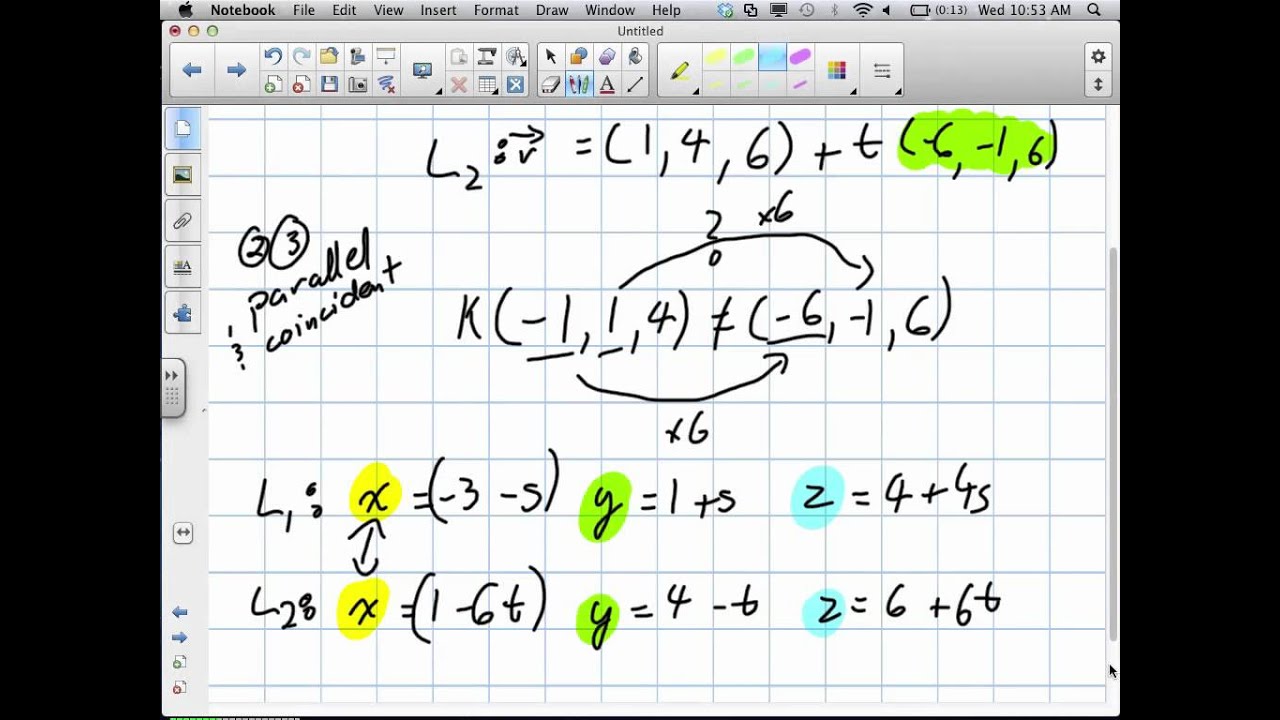 Notebook File Edit View Insert Format Draw Window Help (0:13) Wed 10:53 AM
Untitled
L₂: r⃗ = (1, 4, 6) + t (-6, -1, 6)
② ③
parallel
coincident
x6
K (-1, 1, 4) ≠ (-6, -1, 6)
x6
L₁: x = (-3 - s) y = 1 + s z = 4 + 4s
L₂: x = (1 - 6t) y = 4 - t z = 6 + 6t